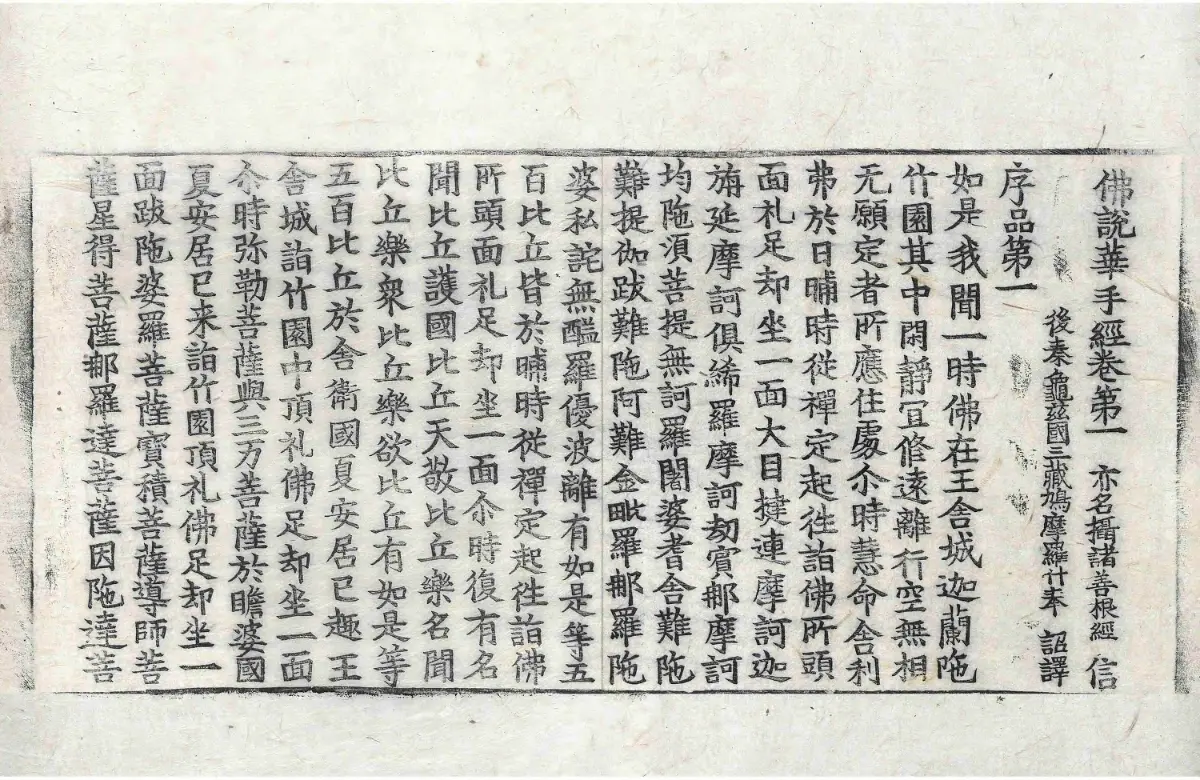 佛說華手經卷第一 亦名攝諸善根經 信
後秦龜茲國三藏鳩摩羅什奉 詔譯
序品第一
如是我聞一時佛在王舍城迦蘭陁
竹園其中閑靜冝修遠離行空無相
无願定者所應住處尒時慧命舍利
弗於日晡時從禪定起往詣佛所頭
面礼足却坐一面大目揵連摩訶迦
旃延摩訶俱絺羅摩訶劫賓那摩訶
均陁湏菩提無訶羅闍婆耆舍難陁
難提伽跋難陁阿難金毗羅那羅陁
婆私詫無醯羅優波離有如是等五
百比丘皆於晡時從禪定起徃詣佛
所頭面礼足却坐一面尒時復有名
聞比丘護國比丘天敬比丘樂名聞
比丘樂衆比丘樂欲比丘有如是等
五百比丘於舍衛國夏安居已趣王
舍城詣竹園中頂礼佛足却坐一面
尒時弥勒菩薩與三万菩薩於瞻婆國
夏安居已来詣竹園頂礼佛足却坐一
面跋陁婆羅菩薩寶積菩薩導師菩
薩星得菩薩那羅達菩薩因陁達菩